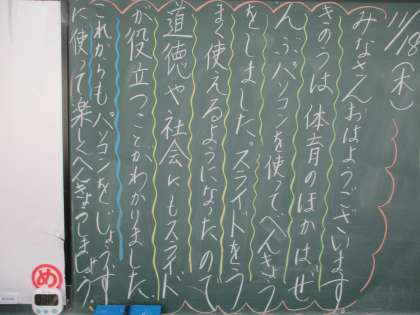 11/19(木)
みなさんおはようございます。
きのうは体育のほかはぜ
んぶパソコンを使ってべんきょう
をしました。スライドをう
まく使えるようになったので
道徳や社会にもスライド
が役立つことがわかりました。
これからもパソコンをじょうず
に使って楽しくべんきょうしましょう。
め